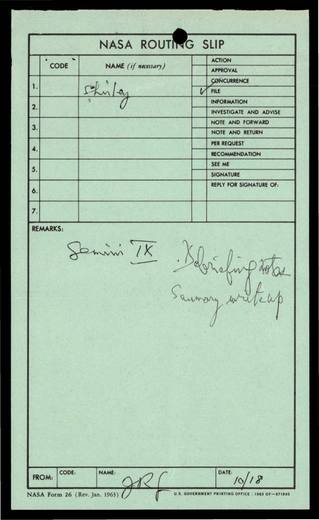 NASA ROUTING SLIP
CODE NAME (if necessary) ACTION
APPROVAL
CONCURRENCE
1. Shirley ✓ FILE
INFORMATION
2. INVESTIGATE AND ADVISE
3. NOTE AND FORWARD
NOTE AND RETURN
4. PER REQUEST
RECOMMENDATION
5. SEE ME
SIGNATURE
6. REPLY FOR SIGNATURE OF:
7.
REMARKS:
Gemini IX Debriefing notes
Summary writeup
FROM: CODE: NAME: DATE: 10/18
NASA Form 26 (Rev. Jan. 1963) U.S. GOVERNMENT PRINTING OFFICE : 1963 OF